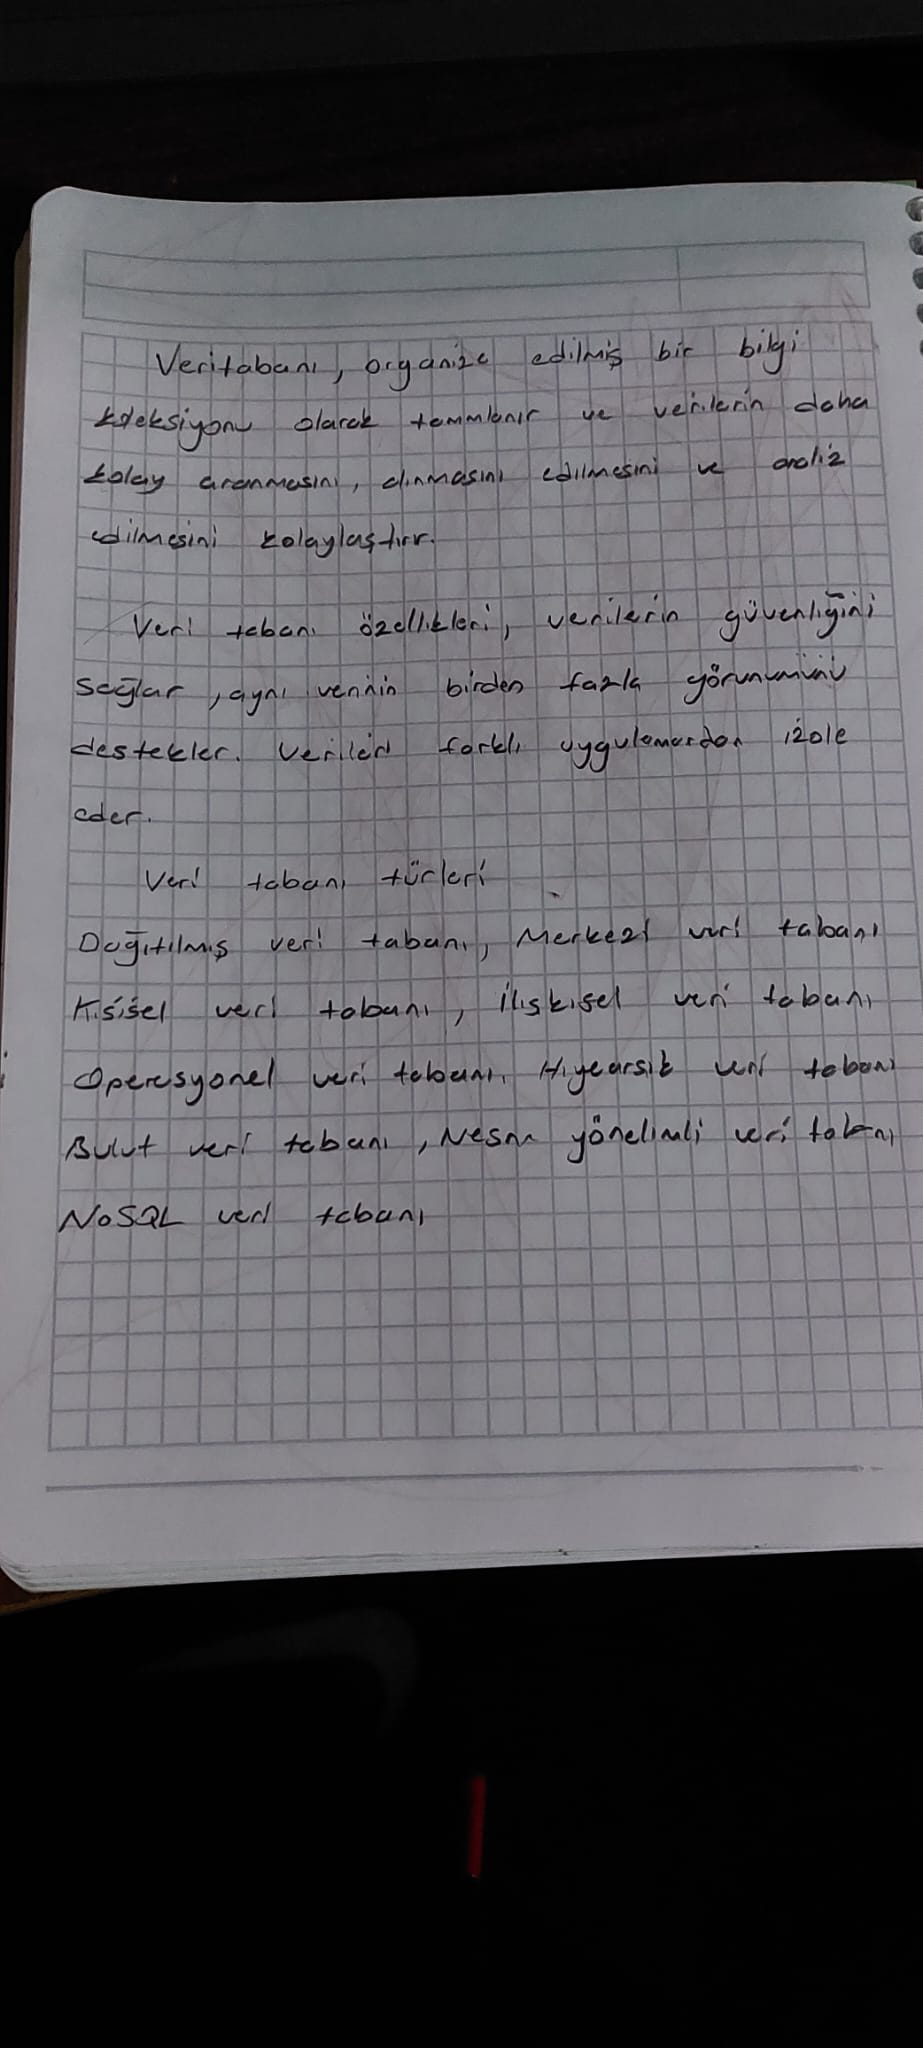 Veritabanı, organize edilmiş bir bilgi
koleksiyonu olarak tanımlanır ve verilerin daha
kolay aranmasını, alınmasını edilmesini ve analiz
edilmesini kolaylaştırır.
Veri tabanı özellikleri, verilerin güvenliğini
sağlar, aynı verinin birden fazla görünümünü
destekler. Verileri farklı uygulamardan izole
eder.
Veri tabanı türleri
Dağıtılmış veri tabanı, Merkezi veri tabanı
Kişisel veri tabanı, ilişkisel veri tabanı
Operasyonel veri tabanı, Hiyearşik veri tabanı
Bulut veri tabanı, Nesne yönelimli veri tabanı
NoSQL veri tabanı